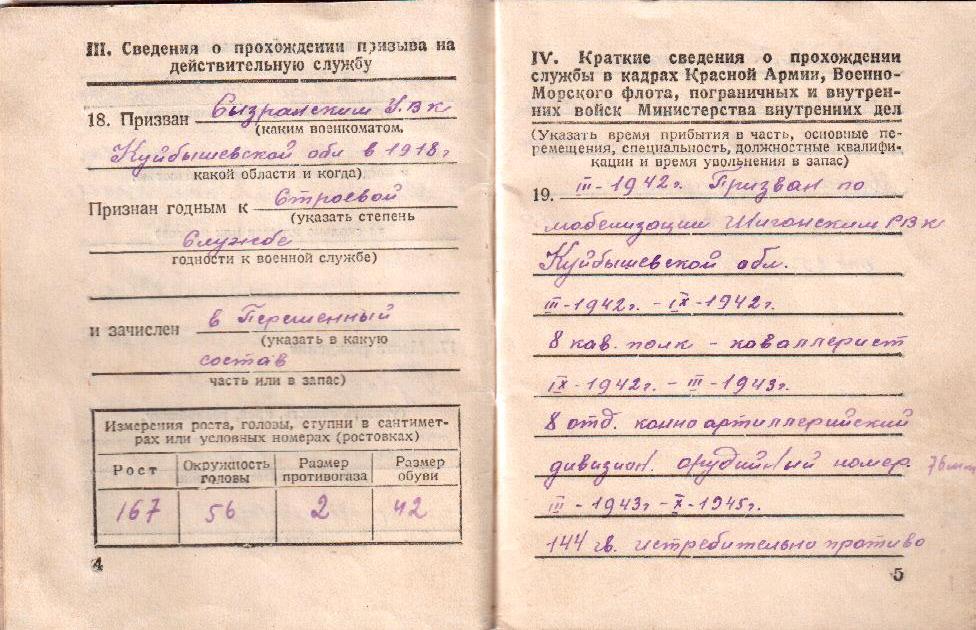 III. Сведения о прохождении призыва на
действительную службу
18. Призван Сызранским У.В.К
(каким военкоматом,
Куйбышевской обл в 1918г
какой области и когда)
Признан годным к Строевой
(указать степень
Службе
годности к военной службе)
и зачислен в Переменный
(указать в какую
состав
часть или в запас)
Измерения роста, головы, ступни в сантимет-
рах или условных номерах (ростовках)
Рост Окружность головы Размер противогаза Размер обуви
167 56 2 42
4
IV. Краткие сведения о прохождении
службы в кадрах Красной Армии, Военно-
Морского флота, пограничных и внутрен-
них войск Министерства внутренних дел
(Указать время прибытия в часть, основные пе-
ремещения, специальность, должностные квалифи-
кации и время увольнения в запас)
19. III-1942г. Призван по
мобелизации Шигонским РВК
Куйбышевской обл.
III-1942г. - IX-1942г.
8 кав. полк - каваллерист
IX-1942г. - III-1943г.
8 отд. конно артиллерийский
дивизион. орудийный номер. 76мм
III-1943г - X-1945г.
144 гв. истребительно противо
5